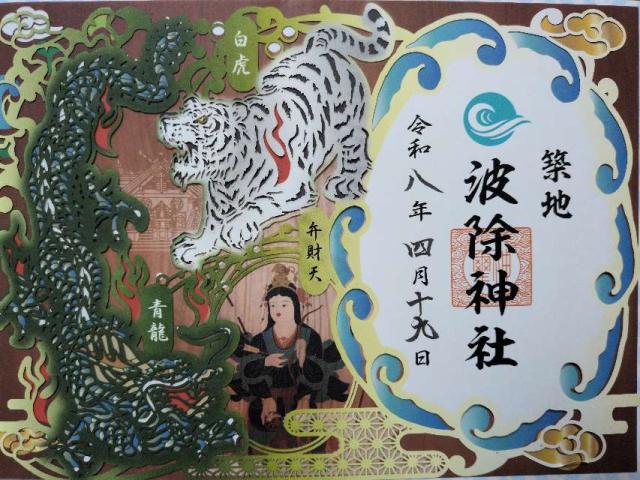 築地
波除神社
令和八年 四月十九日
白虎
弁財天
青龍